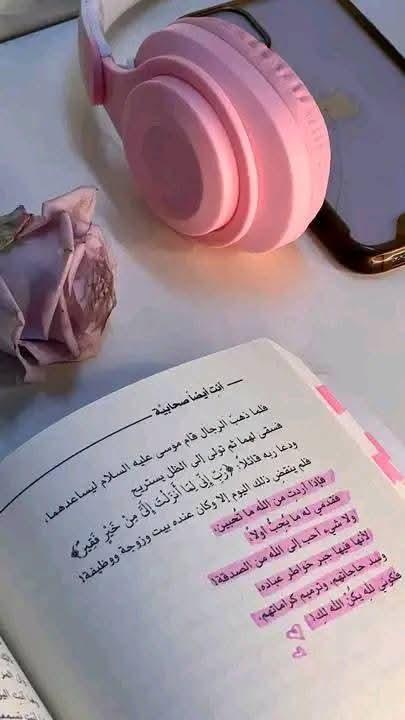 أنتِ أيضاً صحابيّة
فلما ذهبَ الرجال قام موسى عليه السلام ليساعدهما،
فسقى لهما ثم تولى إلى الظل يستريح
ودعا ربه قائلاً: ﴿رَبِّ إِنِّي لِمَا أَنْزَلْتَ إِلَيَّ مِنْ خَيْرٍ فَقِيرٌ﴾
فلم ينقضِ ذلك اليوم إلا وكان عنده بيت وزوجة ووظيفة!
فإذا أردتِ من الله ما تُحبين
فقدمي له ما يُحبُّ أولاً،
ولا شيء أحب إلى الله من الصدقة!
لأنها فيها جبر خواطر عباده،
وسد حاجاتهم، وترميم كراماتهم،
فكوني للهِ يكُنْ اللهُ لكِ!